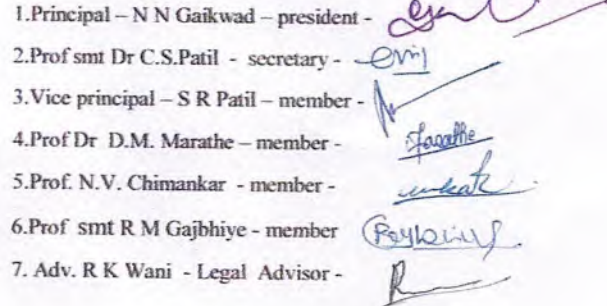 1.Principal – N N Gaikwad – president -
2.Prof smt Dr C.S.Patil - secretary -
3.Vice principal – S R Patil – member -
4.Prof Dr D.M. Marathe – member -
5.Prof. N.V. Chimankar - member -
6.Prof smt R M Gajbhiye - member
7. Adv. R K Wani - Legal Advisor -